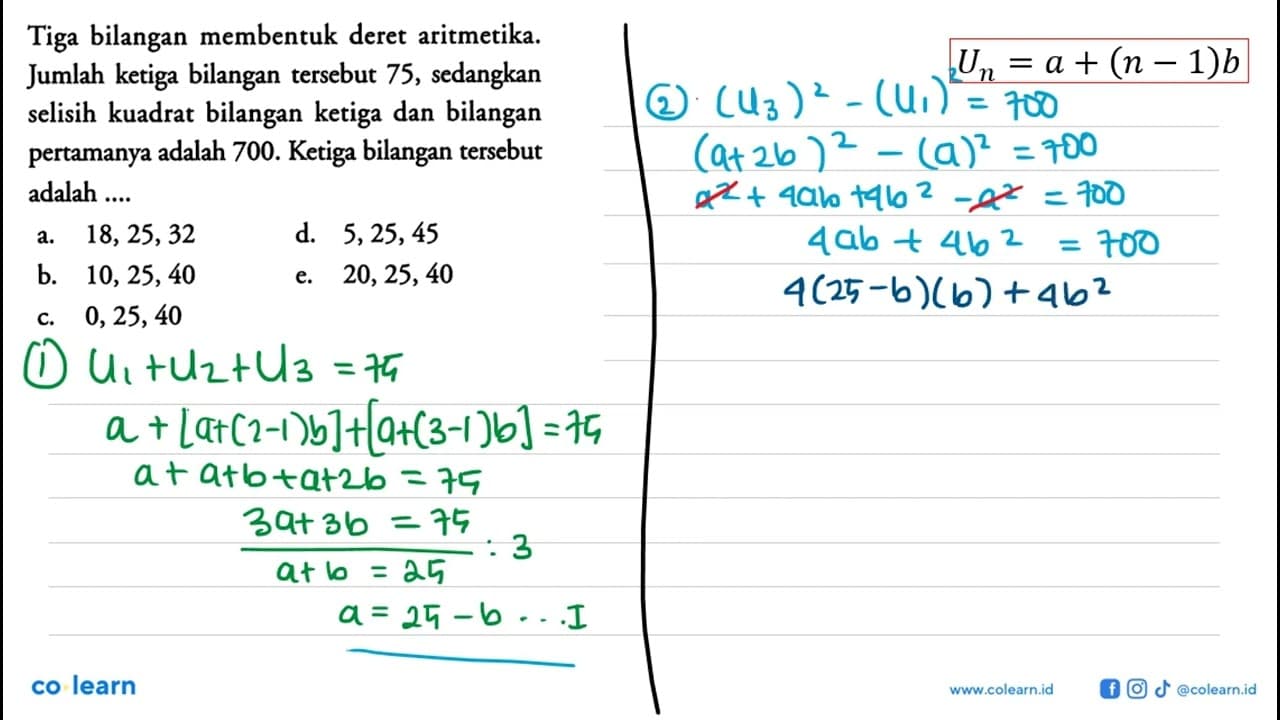 Tiga bilangan membentuk deret aritmetika.
Jumlah ketiga bilangan tersebut 75, sedangkan
selisih kuadrat bilangan ketiga dan bilangan
pertamanya adalah 700. Ketiga bilangan tersebut
adalah ....
a. 18, 25, 32 d. 5, 25, 45
b. 10, 25, 40 e. 20, 25, 40
c. 0, 25, 40
① U₁ + U₂ + U₃ = 75
a + [a+(2-1)b]+[a+(3-1)b] = 75
a + a+b+a+2b = 75
3a+3b = 75 : 3
a+b = 25
a = 25 - b ... I
Uₙ = a + (n − 1)b
② (U₃)² - (U₁)² = 700
(a+2b)² - (a)² = 700
a² + 4ab + 4b² - a² = 700
4ab + 4b² = 700
4(25-b)(b) + 4b²
co learn
www.colearn.id @colearn.id